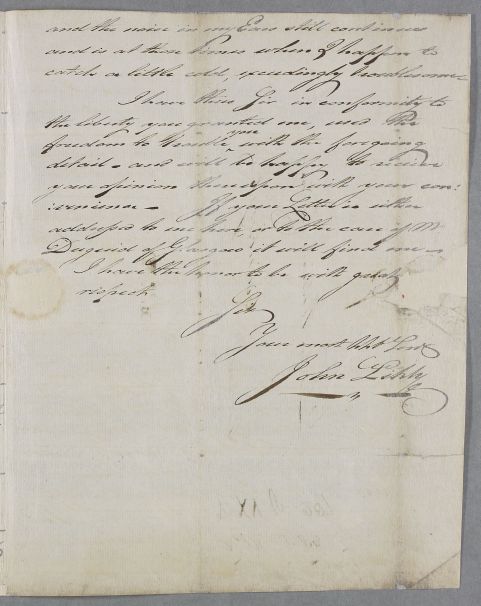 and the noise in my Ears still continues
and is at those times when I happen to
catch a little cold, exceedingly troublesome
I have thus Sir in conformity to
the liberty you granted me, used the
freedom to trouble you with the foregoing
detail - and will be happy to receive
your opinion thereupon with your con:
:venience - If your Letter is either
addressed to me here, or to the care of Mr
Duguid of Glasgow it will find me -
I have the honor to be with great
respect
Sir
Your most hble Serv
John